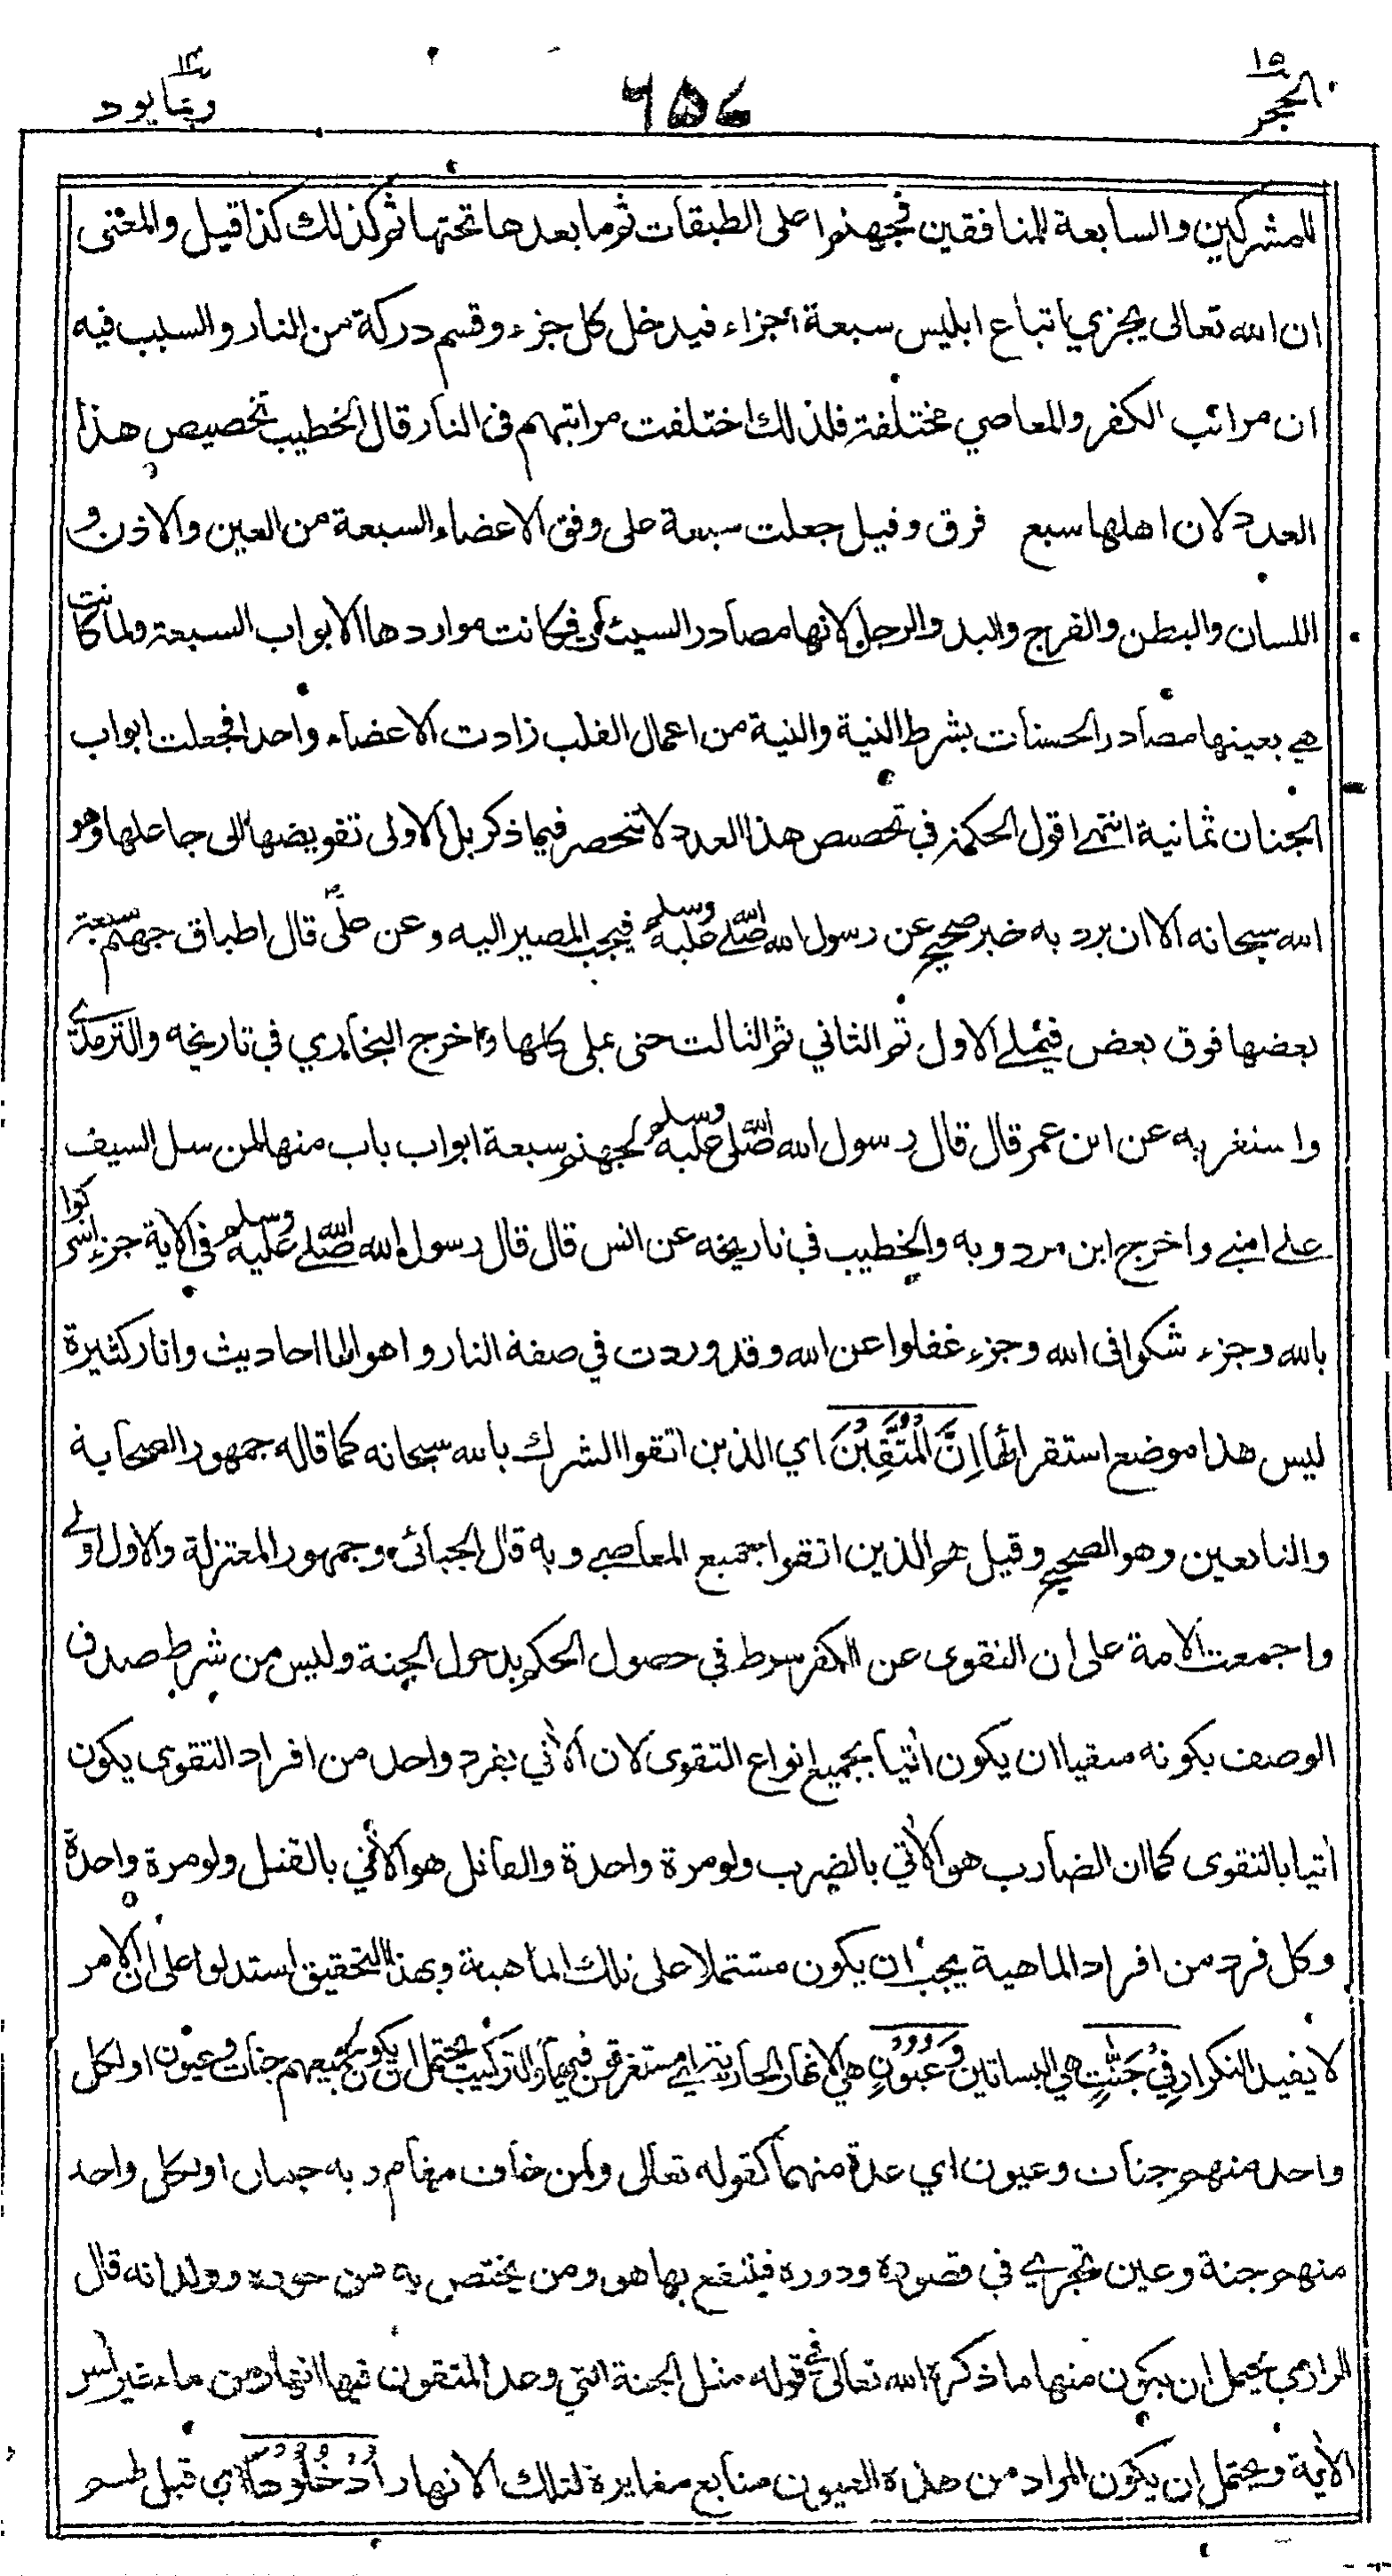 الحجر ١٥
٦٥٧
ربما يود ١٤
للمشركين والسابعة للمنافقين فجهنم اعلى الطبقات ثم ما بعدها تحتها ثم كذلك كذا قيل والمعنى
ان الله تعالى يجزي اتباع ابليس سبعة اجزاء فيدخل كل جزء وقسم دركة من النار والسبب فيه
ان مراتب الكفر والمعاصي مختلفة فلذلك اختلفت مراتبهم فى النار قال الخطيب تخصيص هذا
العدد لان اهلها سبع فرق وقيل جعلت سبعة على وفق الاعضاء السبعة من العين والاذن و
اللسان والبطن والفرج واليد والرجل لانها مصادر السيئات فكانت مواردها الابواب السبعة ولما كانت
هي بعينها مصادر الحسنات بشرط النية والنية من اعمال القلب زادت الاعضاء واحدا فجعلت ابواب
الجنان ثمانية انتهى اقول الحكمة في تخصيص هذا العدد لا تنحصر فيما ذكر بل الاولى تفويضها الى جاعلها وهو
الله سبحانه الا ان يرد به خبر صحيح عن رسول الله صلى الله عليه وسلم فيجب المصير اليه وعن علي قال اطباق جهنم سبعة
بعضها فوق بعض فيملى الاول ثم الثاني ثم الثالث حتى تملى كلها واخرج البخاري في تاريخه والترمذي
واستغربه عن ابن عمر قال قال رسول الله صلى الله عليه وسلم لجهنم سبعة ابواب باب منها لمن سل السيف
على امتي واخرج ابن مردويه والخطيب في تاريخه عن انس قال قال رسول الله صلى الله عليه وسلم فى الاية جزء اشركوا
بالله وجزء شكوا فى الله وجزء غفلوا عن الله وقد وردت في صفة النار واهوالها احاديث واثار كثيرة
ليس هذا موضع استقرائها اِنَّ الْمُتَّقِيْنَ اي الذين اتقوا الشرك بالله سبحانه كما قاله جمهور الصحابة
والتابعين وهو الصحيح وقيل هم الذين اتقوا جميع المعاصي وبه قال الجبائي وجمهور المعتزلة والاول اولى
واجمعت الامة على ان التقوى عن الكفر شرط في حصول الحكم بدخول الجنة وليس من شرط صدق
الوصف بكونه متقيا ان يكون اتيا بجميع انواع التقوى لان الاتي بفرد واحد من افراد التقوى يكون
اتيا بالتقوى كما ان الضارب هو الاتي بالضرب ولو مرة واحدة والقاتل هو الاتي بالقتل ولو مرة واحدة
وكل فرد من افراد الماهية يجب ان يكون مشتملا على تلك الماهية وبهذا التحقيق استدلوا على ان الامر
لا يفيد التكرار فِيْ جَنّٰتٍ هي البساتين وَّعُيُوْنٍ هي الانهار الجارية اي مستغرقون فيهما والتركيب يحتمل ان يكون لجميعهم جنات وعيون او لكل
واحد منهم جنات وعيون اي عدة منهما كقوله تعالى ولمن خاف مقام ربه جنتان او لكل واحد
منهم جنة وعين تجري في قصوره ودوره فينتفع بها هو ومن يختص به من حوره وولدانه قال
الرازي يحتمل ان يكون منها ما ذكره الله تعالى في قوله مثل الجنة التي وعد المتقون فيها انهار من ماء غير اسن
الاية ويحتمل ان يكون المراد من هذه العيون منابع مغايرة لتلك الانهار اُدْخُلُوْهَا اي قيل لهم